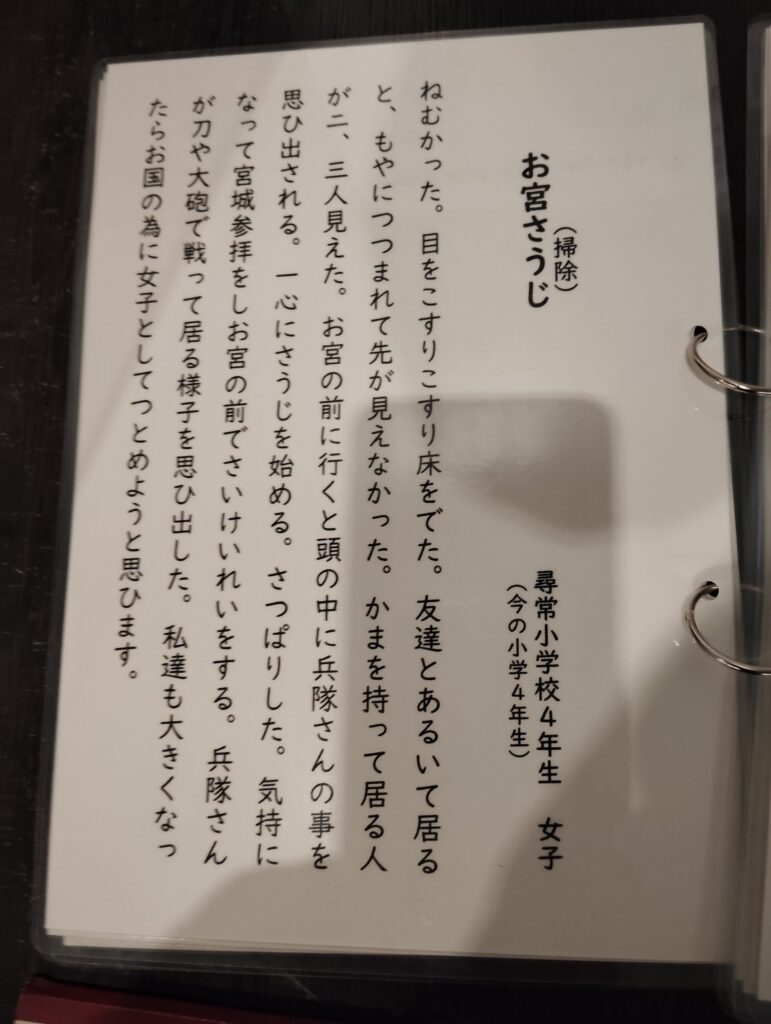 お宮さうじ
（掃除）
尋常小学校４年生　女子
（今の小学４年生）
ねむかった。目をこすりこすり床をでた。友達とあるいて居る
と、もやにつつまれて先が見えなかった。かまを持って居る人
が二、三人見えた。お宮の前に行くと頭の中に兵隊さんの事を
思ひ出される。一心にさうじを始める。さつぱりした。気持に
なって宮城参拝をしお宮の前でさいけいれいをする。兵隊さん
が刀や大砲で戦って居る様子を思ひ出した。私達も大きくなっ
たらお国の為に女子としてつとめようと思ひます。